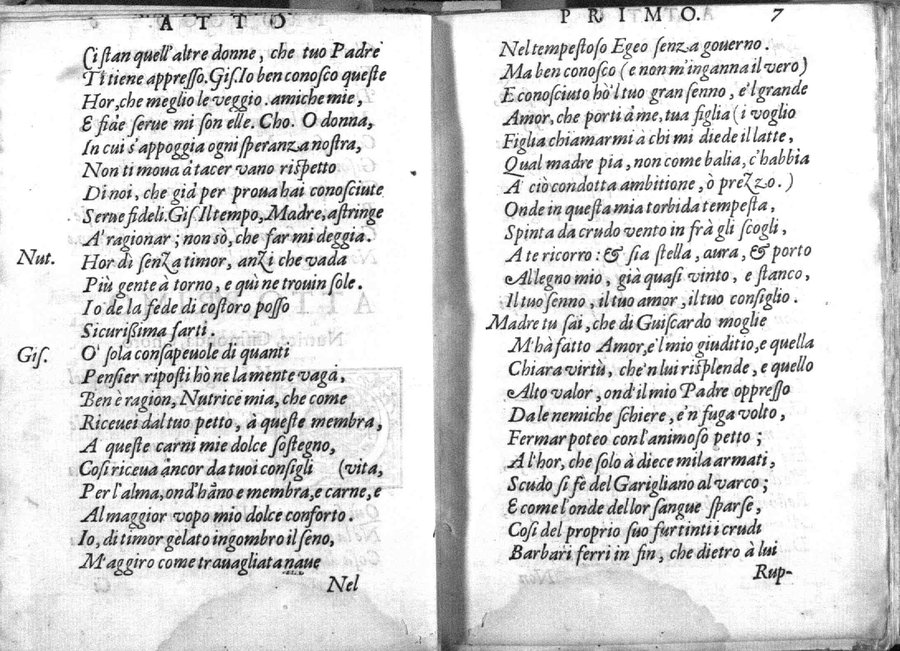 ATTO
Ci stan quell'altre donne, che tuo Padre
Ti tiene appresso. Gis. Io ben conosco queste
Hor, che meglio le veggio. amiche mie,
E fide serue mi son elle. Cho. O donna,
In cui s'appoggia ogni speranza nostra,
Non ti moua à tacer vano rispetto
Di noi, che già per proua hai conosciute
Serue fideli. Gis. Il tempo, Madre, astringe
A' ragionar; non sò, che far mi deggia.
Nut. Hor dì senza timor, anzi che vada
Più gente à torno, e quì ne trouin sole.
Io de la fede di costoro posso
Sicurißima farti.
Gis. O' sola consapeuole di quanti
Pensier riposti hò ne la mente vaga,
Ben è ragion, Nutrice mia, che come
Riceuei dal tuo petto, à queste membra,
A queste carni mie dolce sostegno,
Cosi riceua àncor da tuoi consigli (vita,
Per l'alma, ond'hāno e membra, e carne, e
Al maggior vopo mio dolce conforto.
Io, di timor gelato ingombro il seno,
M'aggiro come trauagliata naue
Nel
PRIMO. 7
Nel tempestoso Egeo senza gouerno.
Ma ben conosco (e non m'inganna il vero)
E conosciuto hò 'l tuo gran senno, e 'l grande
Amor, che porti à me, tua figlia (i voglio
Figlia chiamarmi à chi mi diede il latte,
Qual madre pia, non come balia, c'habbia
A' ciò condotta ambitione, ò prezzo.)
Onde in questa mia torbida tempesta,
Spinta da crudo vento in frà gli scogli,
A te ricorro: & sia stella, aura, & porto
Al legno mio, già quasi vinto, e stanco,
Il tuo senno, il tuo amor, il tuo consiglio.
Madre tu sai, che di Guiscardo moglie
M'hà fatto Amor, e 'l mio giuditio, e quella
Chiara virtù, che 'n lui risplende, e quello
Alto valor, ond'il mio Padre oppresso
Da le nemiche schiere, e 'n fuga volto,
Fermar poteo con l'animoso petto;
Al'hor, che solo à diece mila armati,
Scudo si fè del Garigliano al varco;
E come l'onde del lor sangue sparse,
Cosi del proprio suo fur tinti i crudi
Barbari ferri in fin, che dietro à lui
Rup-